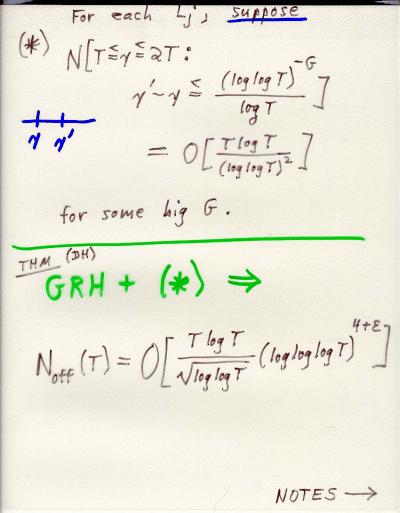 For each Lj, suppose
(*) N[T ≤ γ ≤ 2T :
γ′ − γ ≤ (log log T)^{-G} / log T ]
γ γ′
= O[ T log T / (log log T)^2 ]
for some big G.
THM (DH)
GRH + (*) ⇒
N_off(T) = O[ T log T / √log log T (log log log T)^{4+ε} ]
NOTES →